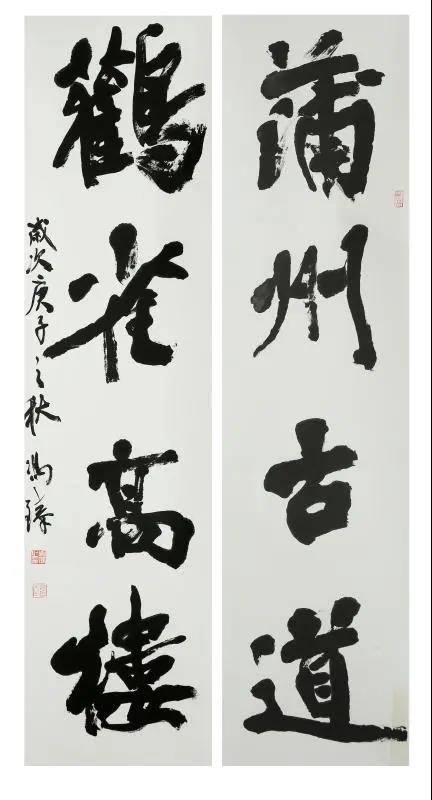 蒲州古道
鸛雀高樓
歲次庚子之秋 馮臻